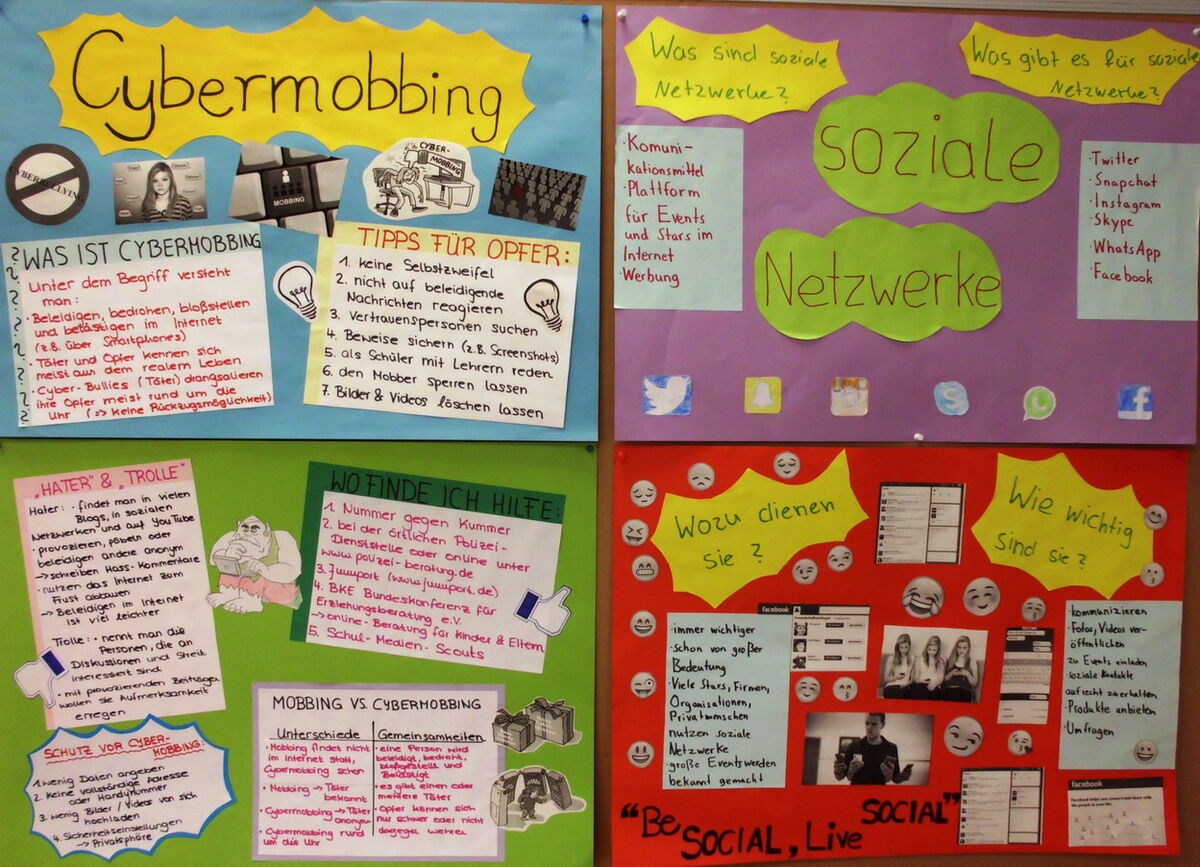 Cybermobbing
CYBERBULLYING
MOBBING
CYBER-
MOBBING
WAS IST CYBERMOBBING
?
?
?
?
?
?
Unter dem Begriff versteht
man:
· Beleidigen, bedrohen, bloßstellen
und belästigen im Internet
(z.B. über Smartphones)
· Täter und Opfer kennen sich
meist aus dem realem Leben
· Cyber-Bullies (Täter) drangsalieren
ihre Opfer meist rund um die
Uhr (=> keine Rückzugsmöglichkeit)
TIPPS FÜR OPFER:
1. keine Selbstzweifel
2. nicht auf beleidigende
Nachrichten reagieren
3. Vertrauenspersonen suchen
4. Beweise sichern (z.B. Screenshots)
5. als Schüler mit Lehrern reden
6. den Mobber sperren lassen
7. Bilder & Videos löschen lassen
Was sind soziale
Netzwerke?
Was gibt es für soziale
Netzwerke?
soziale
Netzwerke
· Komuni-
kationsmittel
· Plattform
für Events
und Stars im
Internet
· Werbung
· Twitter
· Snapchat
· Instagram
· Skype
· WhatsApp
· Facebook
„HATER" & „TROLLE"
Hater: · findet man in vielen
Blogs, in sozialen
Netzwerken und auf YouTube
· provozieren, pöbeln oder
beleidigen andere anonym
→ schreiben Hass-Kommentare
· nutzen das Internet zum
Frust abbauen
→ Beleidigen im Internet
ist viel leichter
Trolle: · nennt man die
Personen, die an
Diskussionen und Streit
interessiert sind
· mit provozierenden Beiträgen
wollen sie Aufmerksamkeit
erregen
WO FINDE ICH HILFE:
1. Nummer gegen Kummer
2. bei der örtlichen Polizei-
Dienststelle oder online unter
www.polizei-beratung.de
3. juuuport (www.juuuport.de)
4. BKE Bundeskonferenz für
Erziehungsberatung e.V.
→ online-Beratung für Kinder & Eltern
5. Schul-Medien-Scouts
SCHUTZ VOR CYBER-
MOBBING:
1. Wenig Daten angeben
2. Keine vollständige Adresse
oder Handynummer
3. Wenig Bilder / Videos von sich
hochladen
4. Sicherheitseinstellungen
→ Privatsphäre
MOBBING VS. CYBERMOBBING
Unterschiede
· Mobbing findet nicht
im Internet statt,
Cybermobbing schon
· Mobbing → Täter
bekannt
· Cybermobbing → Täter
anonym
· Cybermobbing rund
um die Uhr
Gemeinsamkeiten
· eine Person wird
beleidigt, bedroht,
bloßgestellt und
Belästigt
· es gibt einen oder
mehrere Täter
· Opfer können sich
nur schwer oder nicht
dagegen wehren
Wozu dienen
sie?
Wie wichtig
sind sie?
· immer wichtiger
· schon von großer
Bedeutung
· Viele Stars, Firmen,
Organisationen,
Privatmenschen
nutzen soziale
Netzwerke
· große Events werden
bekannt gemacht
facebook
· kommunizieren
· Fotos, Videos ver-
öffentlichen
· zu Events einladen
· soziale Kontakte
aufrecht zu erhalten
· Produkte anbieten
· Umfragen
facebook
"Be SOCIAL, Live SOCIAL"